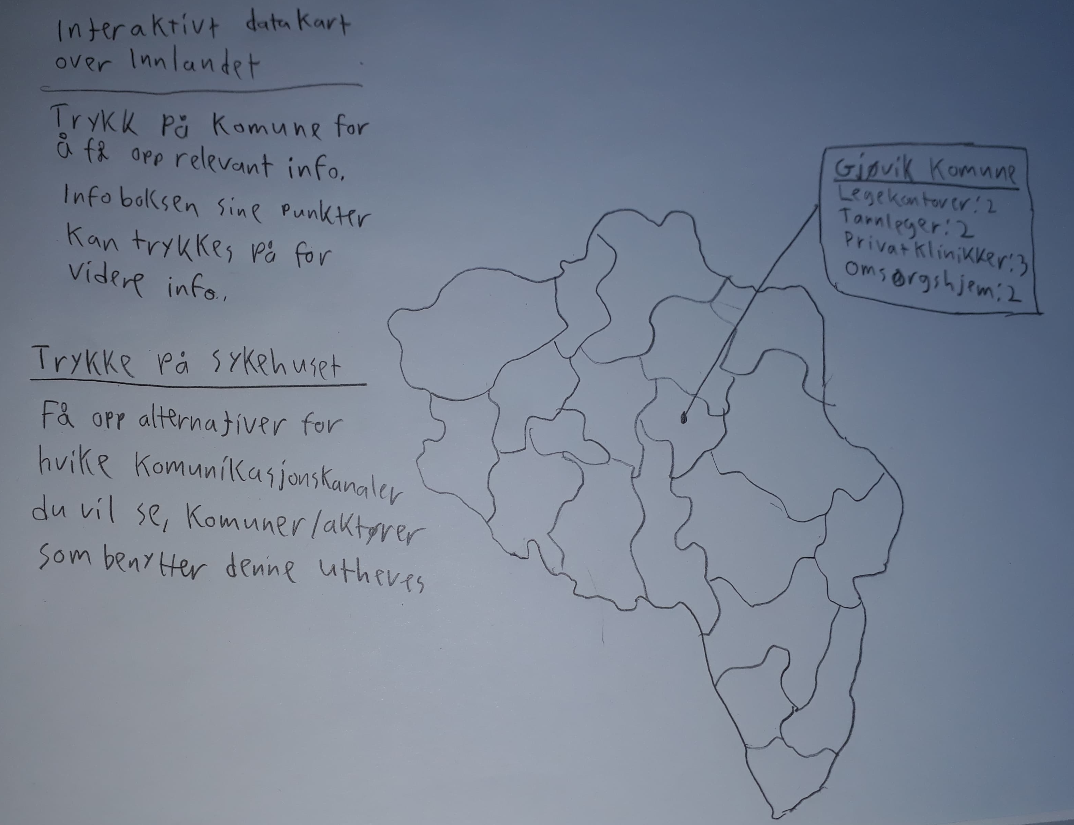 Interaktivt datakart
over Innlandet
Trykk på Komune for
å få opp relevant info.
Infoboksen sine punkter
Kan trykkes på for
videre info.
Trykke på sykehuset
Få opp alternativer for
hvike Komunikasjonskanaler
du vil se, Komuner/aktører
som benytter denne utheves
Gjøvik Komune
Legekontorer: 2
Tannleger: 2
Privatklinikker: 3
Omsørgshjem: 2